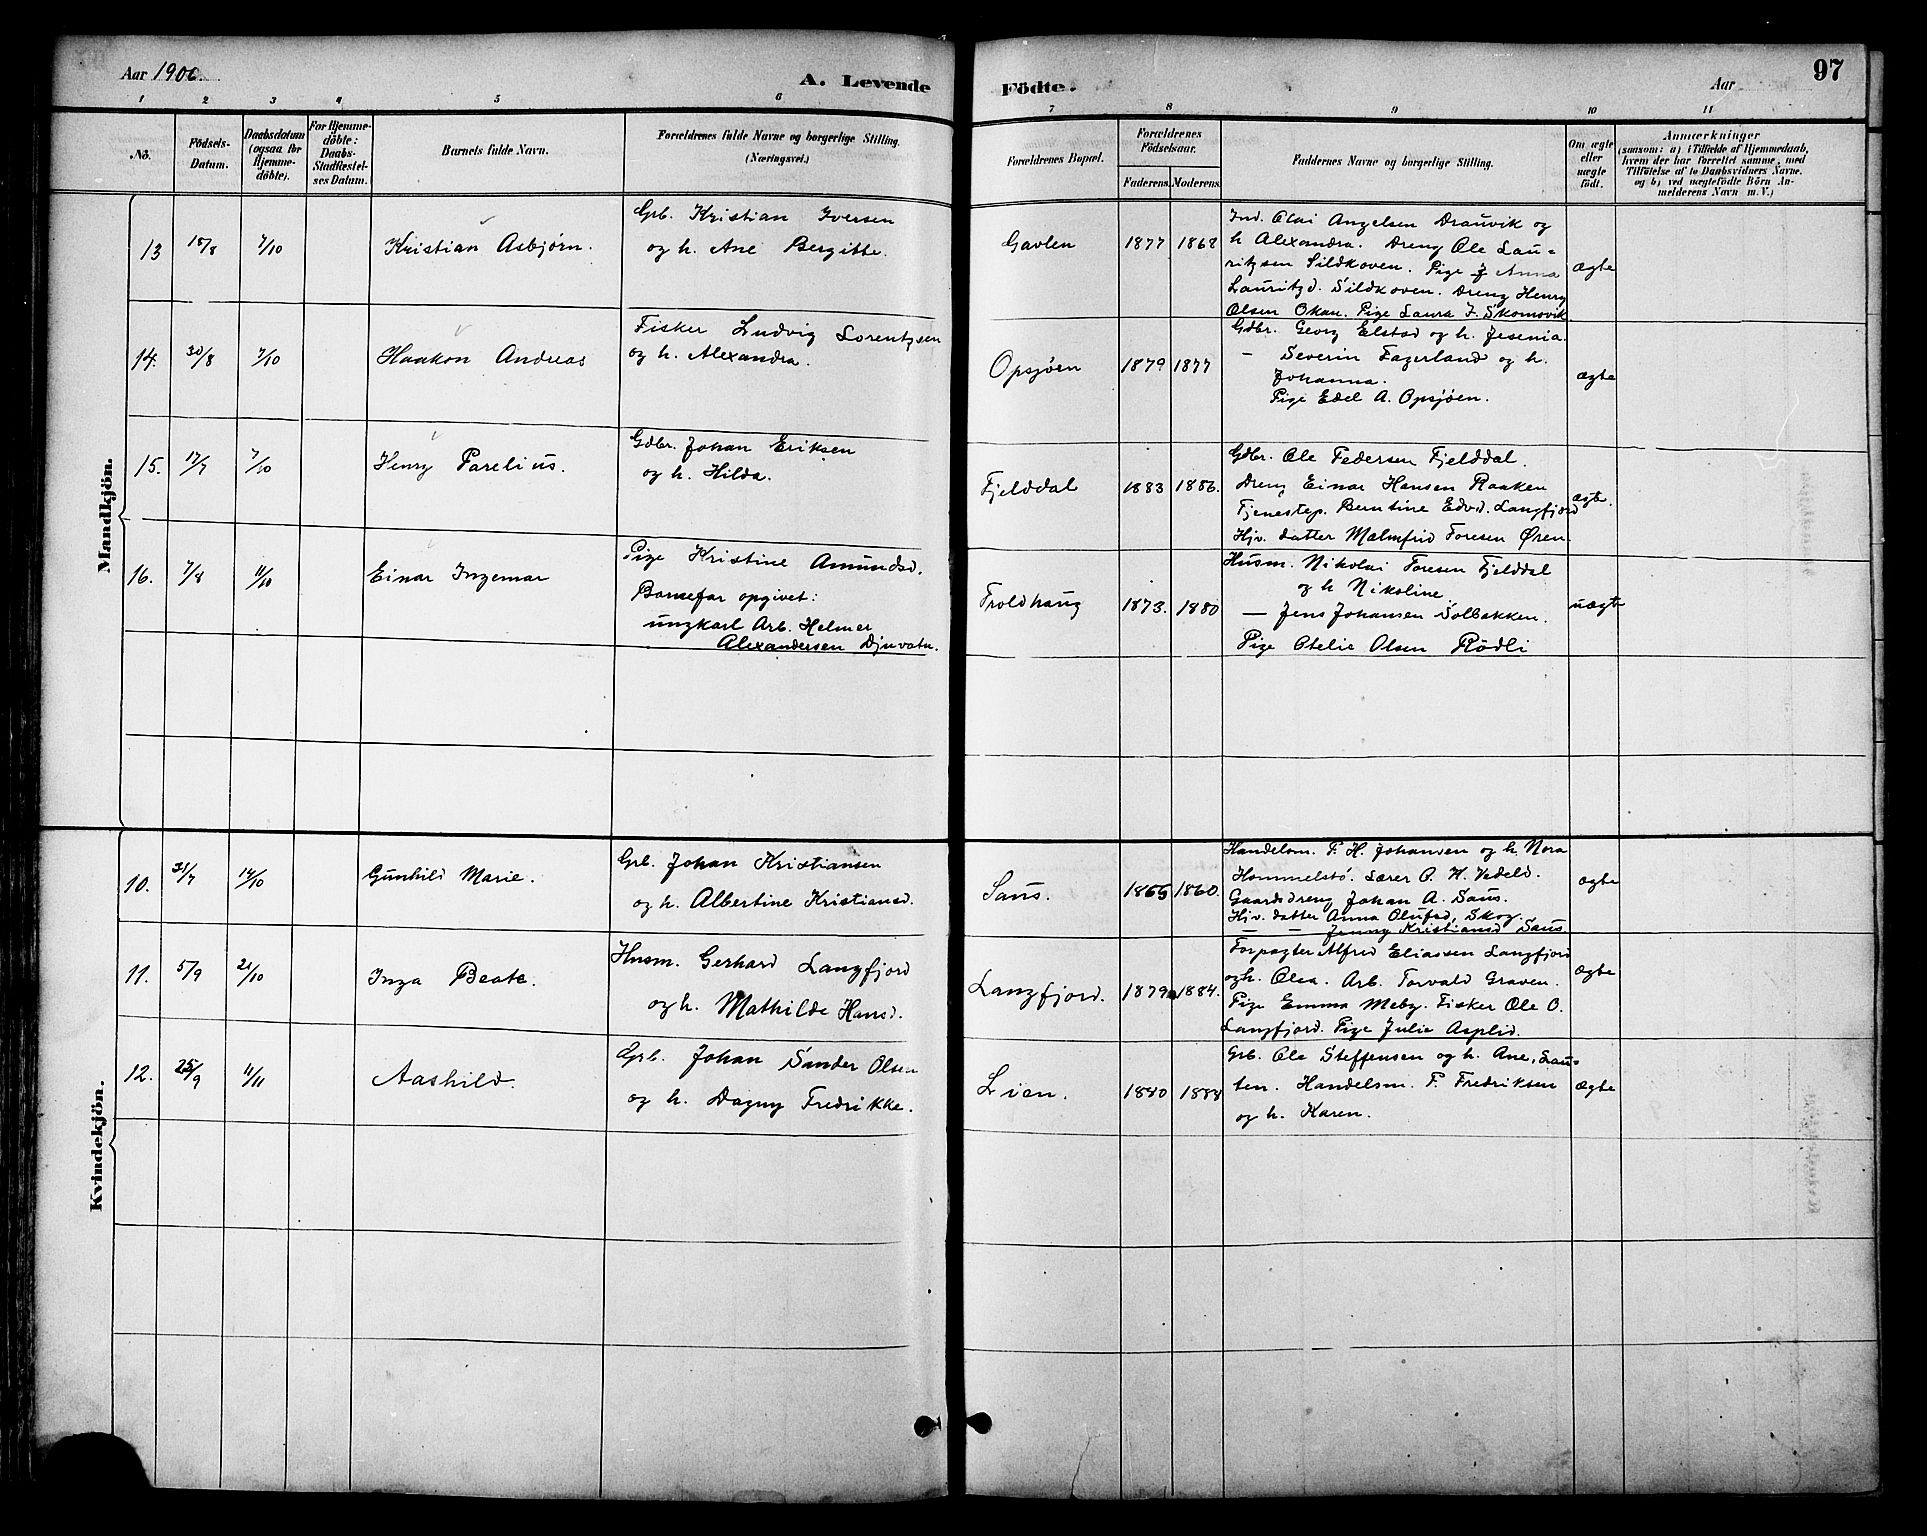 Aar 1906.
A. Levende
Födte.
Aar
97
1 2 3 4 5 6 7 8 9 10 11
No.
Födsels-
Datum.
Daabsdatum
(ogsaa for
Hjemme-
döbte).
For Hjemme-
döbte:
Daabs-
Stadfæstel-
ses Datum.
Barnets fulde Navn.
Forældrenes fulde Navne og borgerlige Stilling.
(Næringsvei.)
Forældrenes Bopæl.
Forældrenes
Födselsaar.
Faderens.
Moderens.
Faddernes Navne og borgerlige Stilling.
Om ægte
eller
uægte
födt.
Anmærkninger
(saasom: a) i Tilfælde af Hjemmedaab,
hvem der har forrettet samme, med
Tilföielse af to Daabsvidners Navne.
og b) ved uægtefödte Börn An-
melderens Navn m. V.)
Mandkjön.
13 18/8 7/10
Kristian Asbjørn.
Grb. Kristian Iversen
og h. Ane Bergitte.
Gavlen
1877 1868
Ind. Olai Angelsen Drauvik og
h Alexandra. Dreng Ole Lau-
ritzsen Sildkoven. Pige Anna
Lauritzd. Sildkoven. Dreng Henry
Olsen Okan. Pige Laura J. Skomovik
ægte
14. 30/8 7/10
Haakon Andreas
Fisker Ludvig Lorentzsen
og h. Alexandra.
Opsjøen
1879 1877
Gdbr. Georg Elstad og h. Jesenia.
— Severin Fagerland og h.
Johanna.
Pige Edel A. Opsjøen.
ægte
15. 17/7 7/10
Henry Parelius.
Gdbr. Johan Eriksen
og h. Hilda.
Fjelddal
1883 1886.
Gdbr. Ole Pedersen Fjelddal.
Dreng Einar Hansen Raaken
Tjenestep. Berntine Edvd. Langfjord
Hjv. datter Malmfrid Toresen Øren
ægte.
16. 7/8 11/10
Einar Ingemar
Pige Kristine Amundsd.
Barnefar opgivet:
ungkarl Arb. Helmer
Alexandersen Djuvatn.
Troldhaug
1873. 1880
Husm. Nikolai Toresen Fjelddal
og h Nikoline
— Jens Johansen Solbakken.
Pige Otelie Olsen Rödli
uægte
Kvindekjön.
10. 31/7 14/10
Gunhild Marie.
Grb. Johan Kristiansen
og h. Albertine Kristiansd.
Saus.
1865 1860.
Handelsm. P. H. Johansen og h. Nora
Hommelstö. Lærer O. H. Vedeld.
Gaardsdreng Johan A. Saus.
Hjv. datter Anna Olufsd, Skog.
— — Jenny Kristiansd Saus
ægte
11. 5/9 21/10
Inga Beate.
Husm. Gerhard Langfjord
og h. Mathilde Hansd.
Langfjord.
1879 1884.
Forpagter Alfred Eliassen Langfjord
og h. Olsa. Arb. Torvald Graven.
Pige Emma Meby. Fisker Ole O.
Langfjord. Pige Julie Asplid.
ægte
12. 25/9 11/11
Aashild.
Grb. Johan Sander Olsen
og h. Dagny Fredrikke.
Lien.
1880 1884
Grb. Ole Steffensen og h. Ane, Saus-
ten. Handelsm. P. Fredriksen
og h. Karen.
ægte